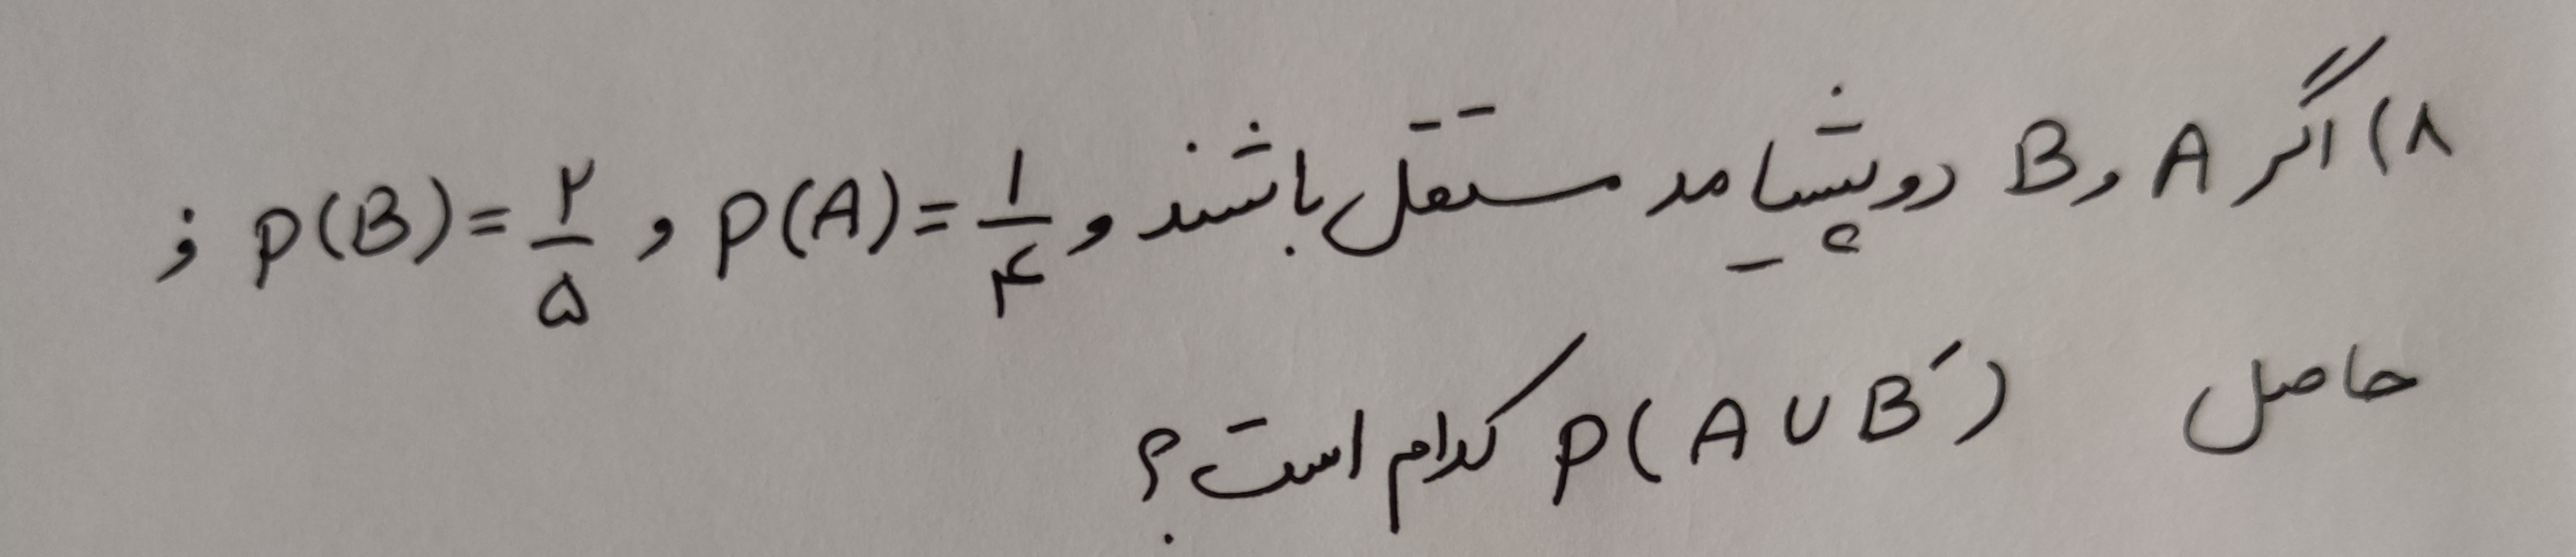 ۸) اگر A و B دو پیشامد مستقل باشند و P(A)=۱/۴ و P(B)=۲/۵ ;
حاصل P(A∪B′) کدام است؟